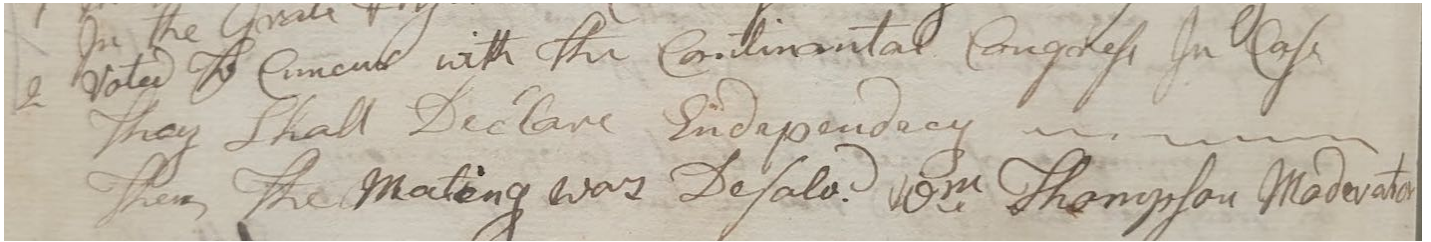 In the Grate
2 Voted To Concur with the Continental Congress In Case
They Shall Declare Endependacy
Then The Mateing was Desalvd. Wm Thompson Moderator